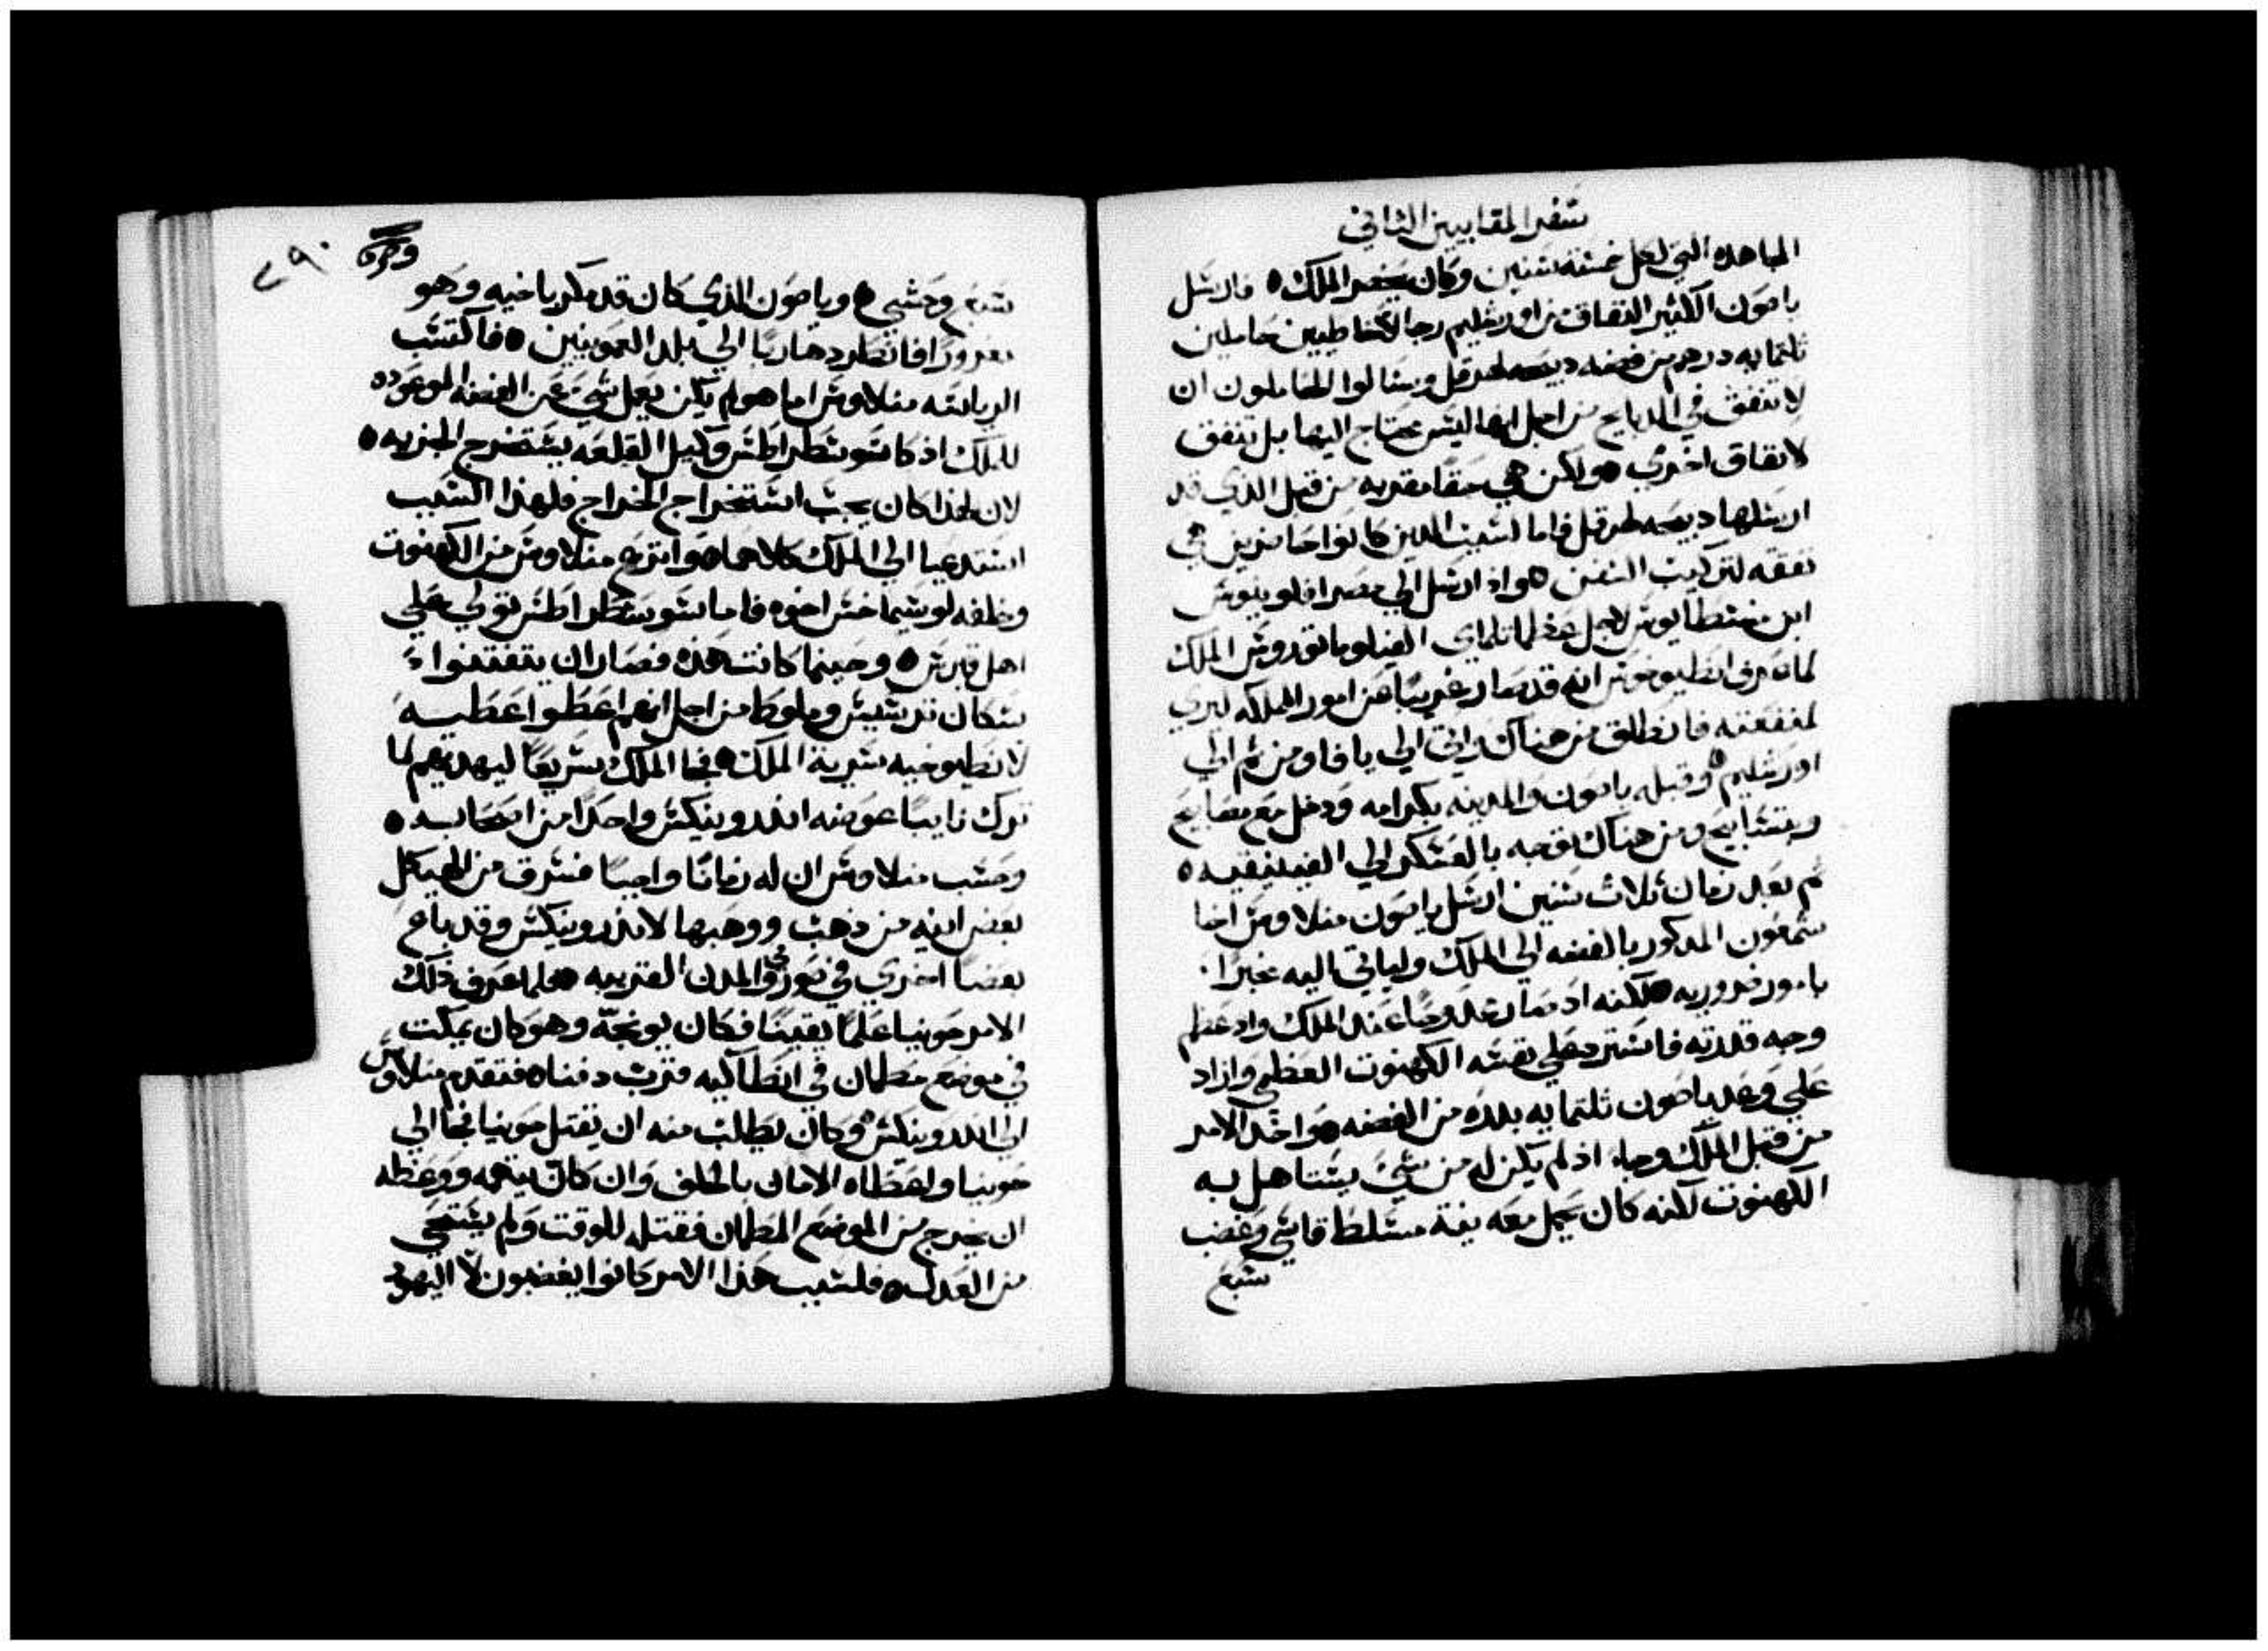 سفر المقابيين الثاني
المجاهده التي لعل خمسة سنين وكان يحضر الملك ⁕ فارسل
ياصون الكثير النفاق من اورشليم رجالا خاطيين حاملين
ثلتمايه درهم من فضه ديبحه لهرقل وسالوا الحاملون ان
لا تنفق في الدبايح من اجل انها ليس يحتاج اليها بل تنفق
لانفاق اخري ⁕ ولكن هي حقا مقدمه من قبل الذي قد
ارسلها ديبحه لهرقل فاما لسبب الدين كانوا حاضرين هي
نفقه لتركيب السفن ⁕ واذ ارسل الي مصر افلونيوس
ابن منسطايوس لاجل عظما تلماي الفيلوماتوروس الملك
لما عرف انطيوخوس انه قد صار غريبا عن امور المملكه لبري
لمنفعته فانطلق من هناك واتي الي يافا ومن ثم الي
اورشليم ⁕ وقبله ياصون والمدينه بكرامه ودخل مع مصابيح
وتسابيح ومن هناك توجه بالعسكر الي الفينيقيه ⁕
ثم بعد زمان ثلاث سنين ارسل ياصون منلاوس اخا
سمعون المدكور بالفضه الي الملك ولياتي اليه مخبرا
بامور ضروريه ⁕ لكنه اد صار ممدوحا عند الملك واد عظم
وجه قدرته فاسترد علي نفسه الكهنوت العظمي وازاد
علي وعد ياصون ثلتمايه بدره من الفضه ⁕ واخد الامر
من قبل الملك وجاء اذ لم يكن له من شي يستاهل به
الكهنوت لكنه كان يحمل معه نية متسلط قاسي وغضب
سبع
سبع وحشي ⁕ وياصون الذي كان قد مكر باخيه وهو
مغرورا فانطرد هاربا الي بلد العمونيين ⁕ فاكتسب
الرياسه منلاوس اما هو لم يكن يعمل شي عن الفضه الموعوده
للملك اد كان سوسطراطس وكيل القلعه يستخرج الجزيه ⁕
لان لهذا كان يجب استخراج الخراج فلهذا السبب
استدعيا الي الملك كلاهما ⁕ وانتزع منلاوس من الكهنوت
وخلفه لوسيماخس اخوه فاما سوسطراطس تولي علي
اهل قبرس ⁕ وحينما كانت هذه فصار ان يتفتنوا
سكان ترسيس وملوط من اجل انهم اعطوا عطيه
لانطيوخيه سرية الملك ⁕ فجا الملك سريعا ليهديهم لما
ترك نايبا عوضه اندرونيكس واحدا من اصحابه ⁕
وحسب منلاوس ان له زمانا واجبا فسرق من الهيكل
بعض انيه من ذهب ووهبها لاندرونيكس وقد باع
بعضا اخري في صور وفي المدن القريبه ⁕ فلما عرف ذلك
الامر حونيا علما يقينا فكان يوبخه وهو كان يمكت
في موضع مطمان في انطاكيه قرب دفنا ⁕ فتقدم منلاوس
الي اندرونيكس وكان يطلب منه ان يقتل حونيا فجا الي
حونيا واعطاه الامان بالحلف وان كان يتهمه ووعظه
ان يخرج من الموضع المطمان فقتله للوقت ولم يستحي
من العدل ⁕ فلسبب هذا الامر كانوا يغضبون لا اليهود